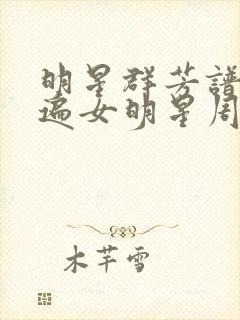 明星群芳譜
遍女明星周
木芊雪